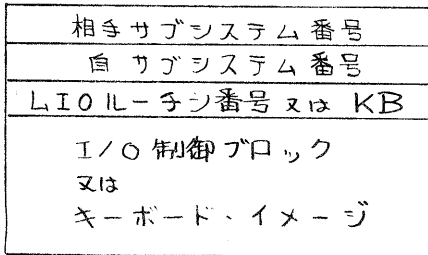 相手サブシステム番号
自サブシステム番号
LIOルーチン番号又はKB
I/O制御ブロック
又は
キーボード・イメージ